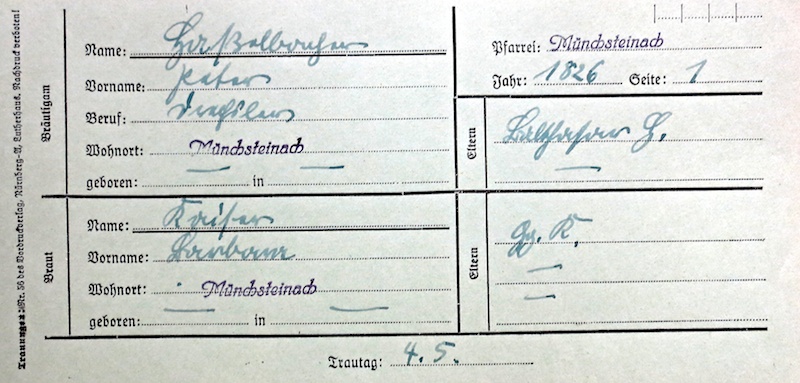 Trauungen: Nr. 56 des Vordruckverlag, Nürnberg-A, Lutherhaus. Nachdruck verboten!
Bräutigam
Name: Haßelbacher
Vorname: Peter
Beruf: Drechsler
Wohnort: Münchsteinach
geboren: — in —
Pfarrei: Münchsteinach
Jahr: 1826 Seite: 1
Eltern
Balthasar H.
—
Braut
Name: Kaiser
Vorname: Barbara
Wohnort: Münchsteinach
geboren: — in —
Eltern
Gg. K.
—
—
Trautag: 4. 5.